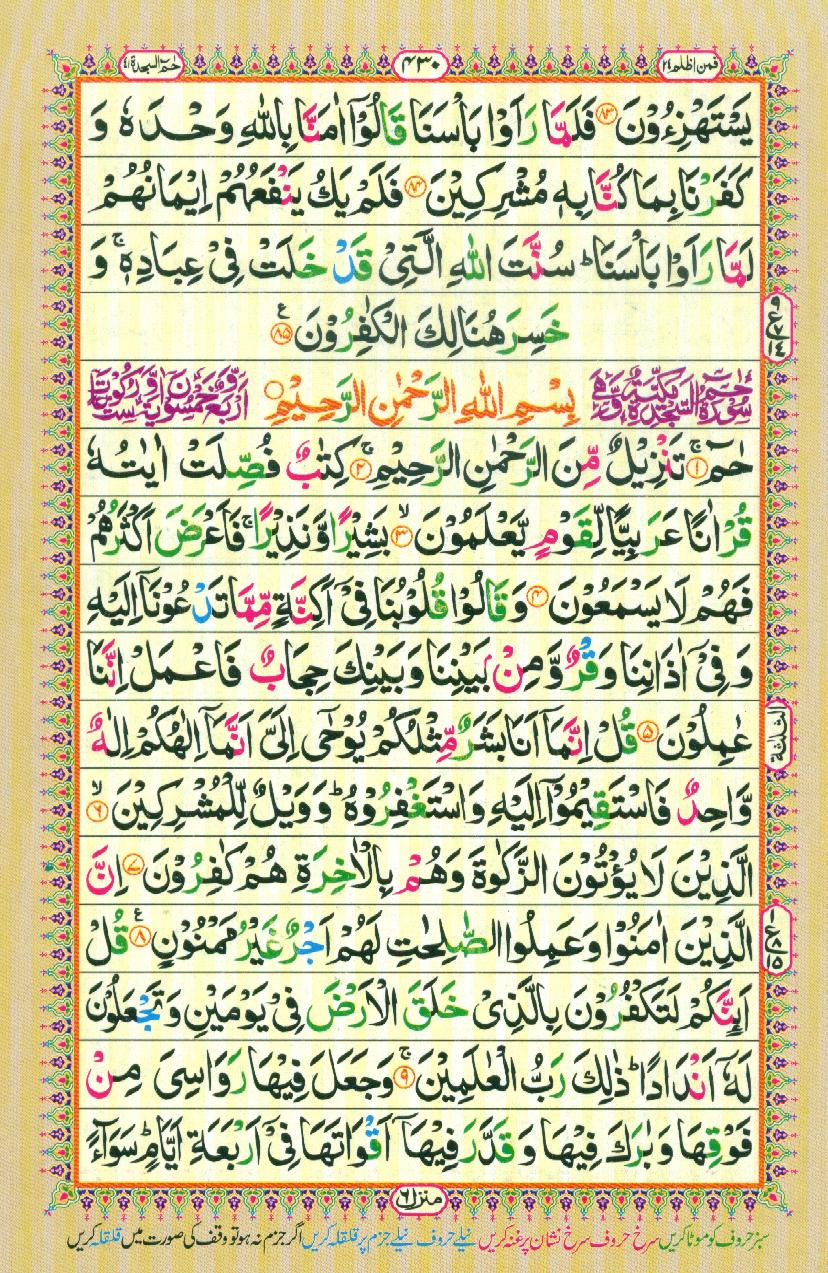 فمن اظلم ٢٤ ٤٣٠ حٰمٓ السجدة ٤١
يَسۡتَهۡزِءُوۡنَ ﴿۸۳﴾ فَلَمَّا رَاَوۡا بَاۡسَنَا قَالُوۡۤا اٰمَنَّا بِاللّٰهِ وَحۡدَهٗ وَ
كَفَرۡنَا بِمَا كُنَّا بِهٖ مُشۡرِكِيۡنَ ﴿۸۴﴾ فَلَمۡ يَكُ يَنۡفَعُهُمۡ اِيۡمَانُهُمۡ
لَمَّا رَاَوۡا بَاۡسَنَا ؕ سُنَّتَ اللّٰهِ الَّتِىۡ قَدۡ خَلَتۡ فِىۡ عِبَادِهٖ ۚ وَ
خَسِرَ هُنَالِكَ الۡكٰفِرُوۡنَ ﴿۸۵﴾
بِسۡمِ اللّٰهِ الرَّحۡمٰنِ الرَّحِيۡمِ
حٰمٓ ۚ‏ ﴿۱﴾ تَنۡزِيۡلٌ مِّنَ الرَّحۡمٰنِ الرَّحِيۡمِ ۚ‏ ﴿۲﴾ كِتٰبٌ فُصِّلَتۡ اٰيٰتُهٗ
قُرۡاٰنًا عَرَبِيًّا لِّقَوۡمٍ يَّعۡلَمُوۡنَ ۙ‏ ﴿۳﴾ بَشِيۡرًا وَّنَذِيۡرًا ۚ فَاَعۡرَضَ اَكۡثَرُهُمۡ
فَهُمۡ لَا يَسۡمَعُوۡنَ ﴿۴﴾ وَقَالُوۡا قُلُوۡبُنَا فِىۡۤ اَكِنَّةٍ مِّمَّا تَدۡعُوۡنَاۤ اِلَيۡهِ
وَفِىۡۤ اٰذَانِنَا وَقۡرٌ وَّمِنۡۢ بَيۡنِنَا وَبَيۡنِكَ حِجَابٌ فَاعۡمَلۡ اِنَّنَا
عٰمِلُوۡنَ ﴿۵﴾ قُلۡ اِنَّمَاۤ اَنَا بَشَرٌ مِّثۡلُكُمۡ يُوۡحٰٓى اِلَىَّ اَنَّمَاۤ اِلٰهُكُمۡ اِلٰهٌ
وَّاحِدٌ فَاسۡتَقِيۡمُوۡۤا اِلَيۡهِ وَاسۡتَغۡفِرُوۡهُ ؕ وَوَيۡلٌ لِّلۡمُشۡرِكِيۡنَ ۙ‏ ﴿۶﴾
الَّذِيۡنَ لَا يُؤۡتُوۡنَ الزَّكٰوةَ وَهُمۡ بِالۡاٰخِرَةِ هُمۡ كٰفِرُوۡنَ ﴿۷﴾ اِنَّ
الَّذِيۡنَ اٰمَنُوۡا وَعَمِلُوا الصّٰلِحٰتِ لَهُمۡ اَجۡرٌ غَيۡرُ مَمۡنُوۡنٍ ﴿۸﴾ قُلۡ
اَٮِٕنَّكُمۡ لَتَكۡفُرُوۡنَ بِالَّذِىۡ خَلَقَ الۡاَرۡضَ فِىۡ يَوۡمَيۡنِ وَتَجۡعَلُوۡنَ
لَهٗۤ اَنۡدَادًا ؕ ذٰلِكَ رَبُّ الۡعٰلَمِيۡنَ ۚ‏ ﴿۹﴾ وَجَعَلَ فِيۡهَا رَوَاسِىَ مِنۡ
فَوۡقِهَا وَبٰرَكَ فِيۡهَا وَقَدَّرَ فِيۡهَاۤ اَقۡوَاتَهَا فِىۡۤ اَرۡبَعَةِ اَيَّامٍ ؕ سَوَآءً
الثلثة
منزل ٦
سبز حروف کو موٹا کریں سرخ حروف سرخ نشان پر غنہ کریں نیلے حروف نیلے جزم پر قلقلہ کریں اگر جزم نہ ہو تو وقف کی صورت میں قلقلہ کریں